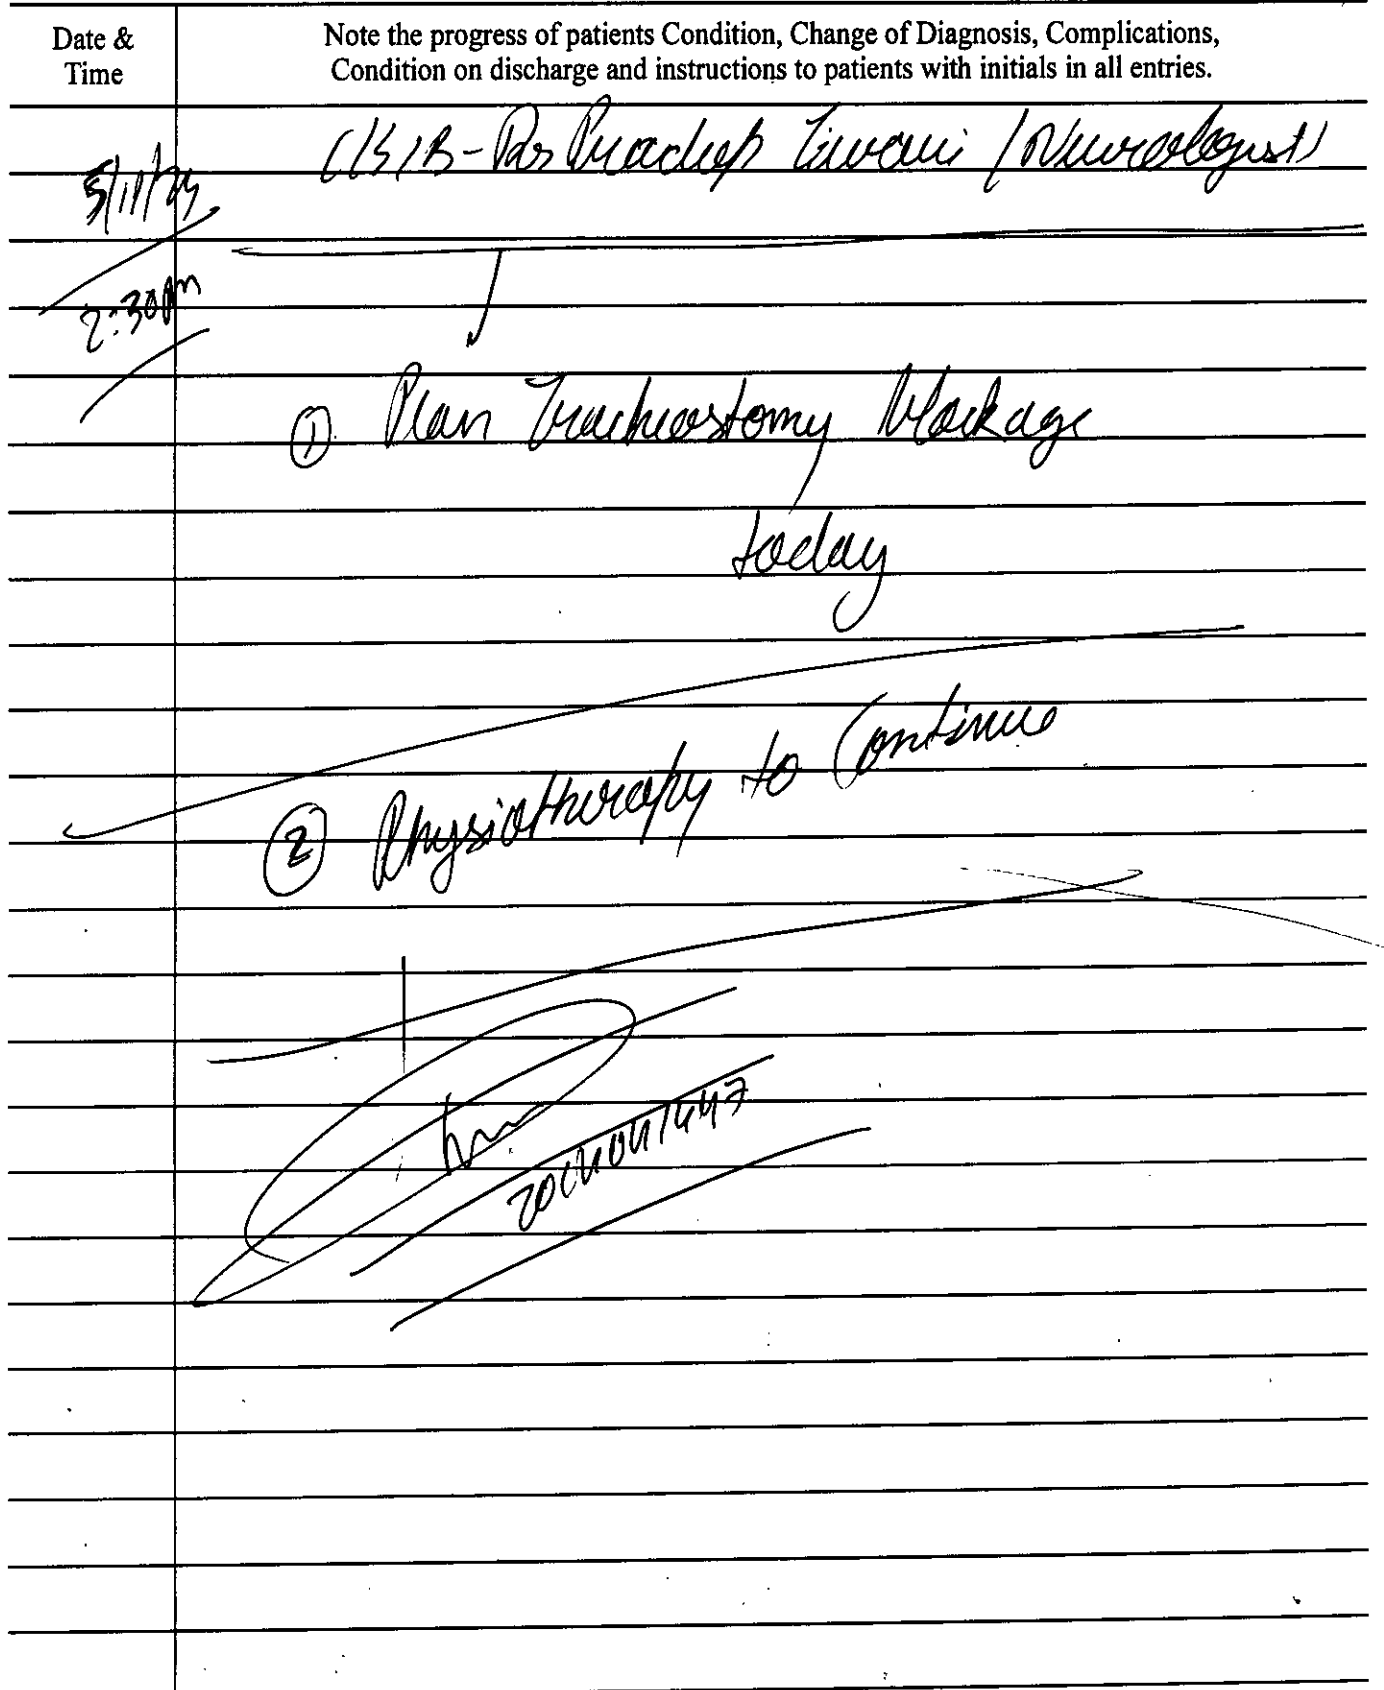 Date & Time
Note the progress of patients Condition, Change of Diagnosis, Complications,
Condition on discharge and instructions to patients with initials in all entries.
C/S/B - Dr Pradeep Tiwari (Neurologist)
5/11/24
2:30pm
① Plan Tracheostomy blockage
today
② Physiotherapy to Continue